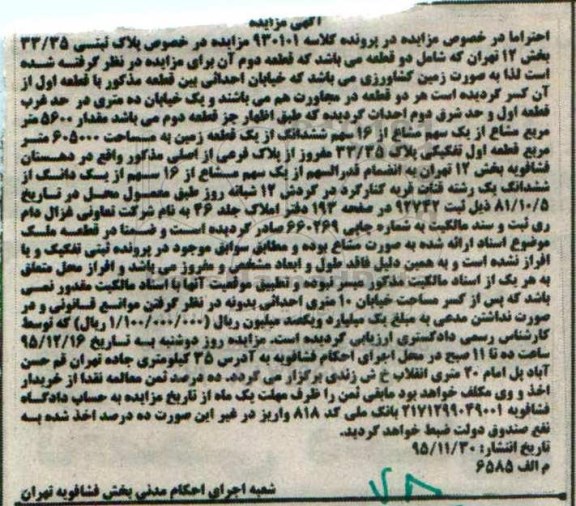 آگهی مزایده
احتراما در خصوص مزایده در پرونده کلاسه ۹۳۰۱۰۱ مزایده در خصوص پلاک ثبتسی ۳۳/۳۵
بخش ۱۲ تهران که شامل دو قطعه می باشد که قطعه دوم آن برای مزایده در نظر گرفته شده
است لذا به صورت زمین کشاورزی می باشد که خیابان احداثی بین قطعه مذکور با قطعه اول از
آن کسر گردیده است هر دو قطعه در مجاورت هم می باشند و یک خیابان ده متری در حد غرب
قطعه اول و حد شرق دوم احداث گردیده که طبق اظهار جز قطعه دوم می باشد مقدار ۵۶۰۰ متر
مربع مشاع از یک سهم مشاع از ۱۶ سهم ششدانگ از یک قطعه زمین به مساحت ۶۰۵۰۰۰ متر
مربع قطعه اول تفکیکی پلاک ۳۳/۳۵ مفروز از پلاک فرعی از اصلی مذکور واقع در دهستان
فشافویه بخش ۱۲ تهران به انضمام قدرالسهم از یک سهم مشاع از ۱۶ سهم از یک دانگ از
ششدانگ یک رشته قنات قریه کنارگرد در گردش ۱۲ شبانه روز طبق معمول محل در تاریخ
۸۱/۱۰/۵ ذیل ثبت ۹۲۷۴۲ در صفحه ۱۹۳ دفتر املاک جلد ۴۶ به نام شرکت تعاونی غزال دام
ری ثبت و سند مالکیت به شماره چاپی ۶۶۰۲۶۹ صادر گردیده است و ضمنا در قطعه ملک
موضوع اسناد ارائه شده به صورت مشاع بوده و مطابق سوابق موجود در پرونده ثبتی تفکیک و یا
افراز نشده است و به همین دلیل فاقد طول و ابعاد مشخص و مفروز می باشد و افراز محل متعلق
به هر یک از اسناد مالکیت مذکور میسر نبوده و تطبیق موقعیت آنها با اسناد مالکیت مقدور نمی
باشد که پس از کسر مساحت خیابان ۱۰ متری احداثی بدونه در نظر گرفتن موانع قانونی و در
صورت نداشتن مدعی به مبلغ یک میلیارد ویکصد میلیون ریال (۱/۱۰۰/۰۰۰/۰۰۰ ریال) که توسط
کارشناس رسمی دادگستری ارزیابی گردیده است. مزایده روز دوشنبه به تاریخ ۹۵/۱۲/۱۶
ساعت ده تا ۱۱ صبح در محل اجرای احکام فشافویه به آدرس ۳۵ کیلومتری جاده تهران قم حسن
آباد پل امام ۲۰ متری انقلاب خ ش زندی برگزار می گردد. ده درصد ثمن معالمه نقدا از خریدار
اخذ و وی مکلف خواهد بود مابقی ثمن را ظرف مهلت یک ماه از تاریخ مزایده به حساب دادگاه
فشافویه ۲۱۷۱۲۹۹۰۴۹۰۰۱ بانک ملی کد ۸۱۸ واریز در غیر این صورت ده درصد اخذ شده به
نفع صندوق دولت ضبط خواهد گردید.
تاریخ انتشار: ۹۵/۱۱/۳۰
م الف ۶۵۸۵
شعبه اجرای احکام مدنی بخش فشافویه تهران